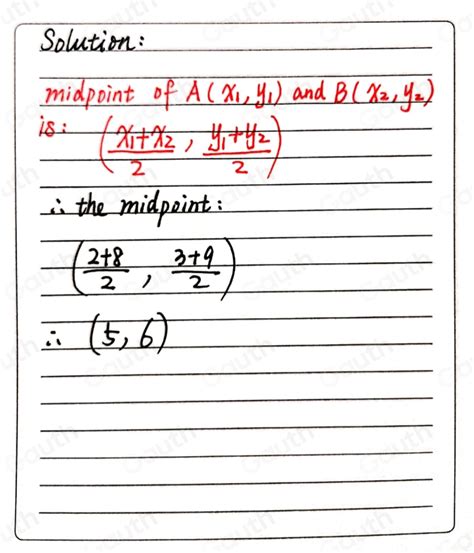 Solution:
midpoint of A(x₁,y₁) and B(x₂,y₂)
is: (x₁+x₂/2, y₁+y₂/2)
∴ the midpoint:
(2+8/2, 3+9/2)
∴ (5,6)
Gauth